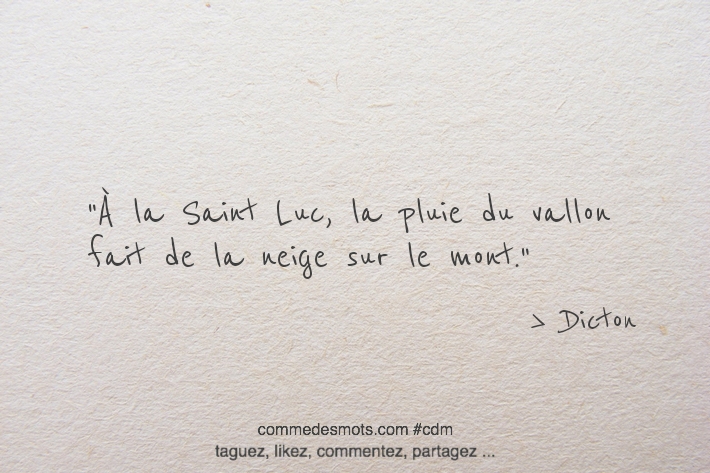 "À la Saint Luc, la pluie du vallon
fait de la neige sur le mont."
> Dicton
commedesmots.com #cdm
taguez, likez, commentez, partagez ...